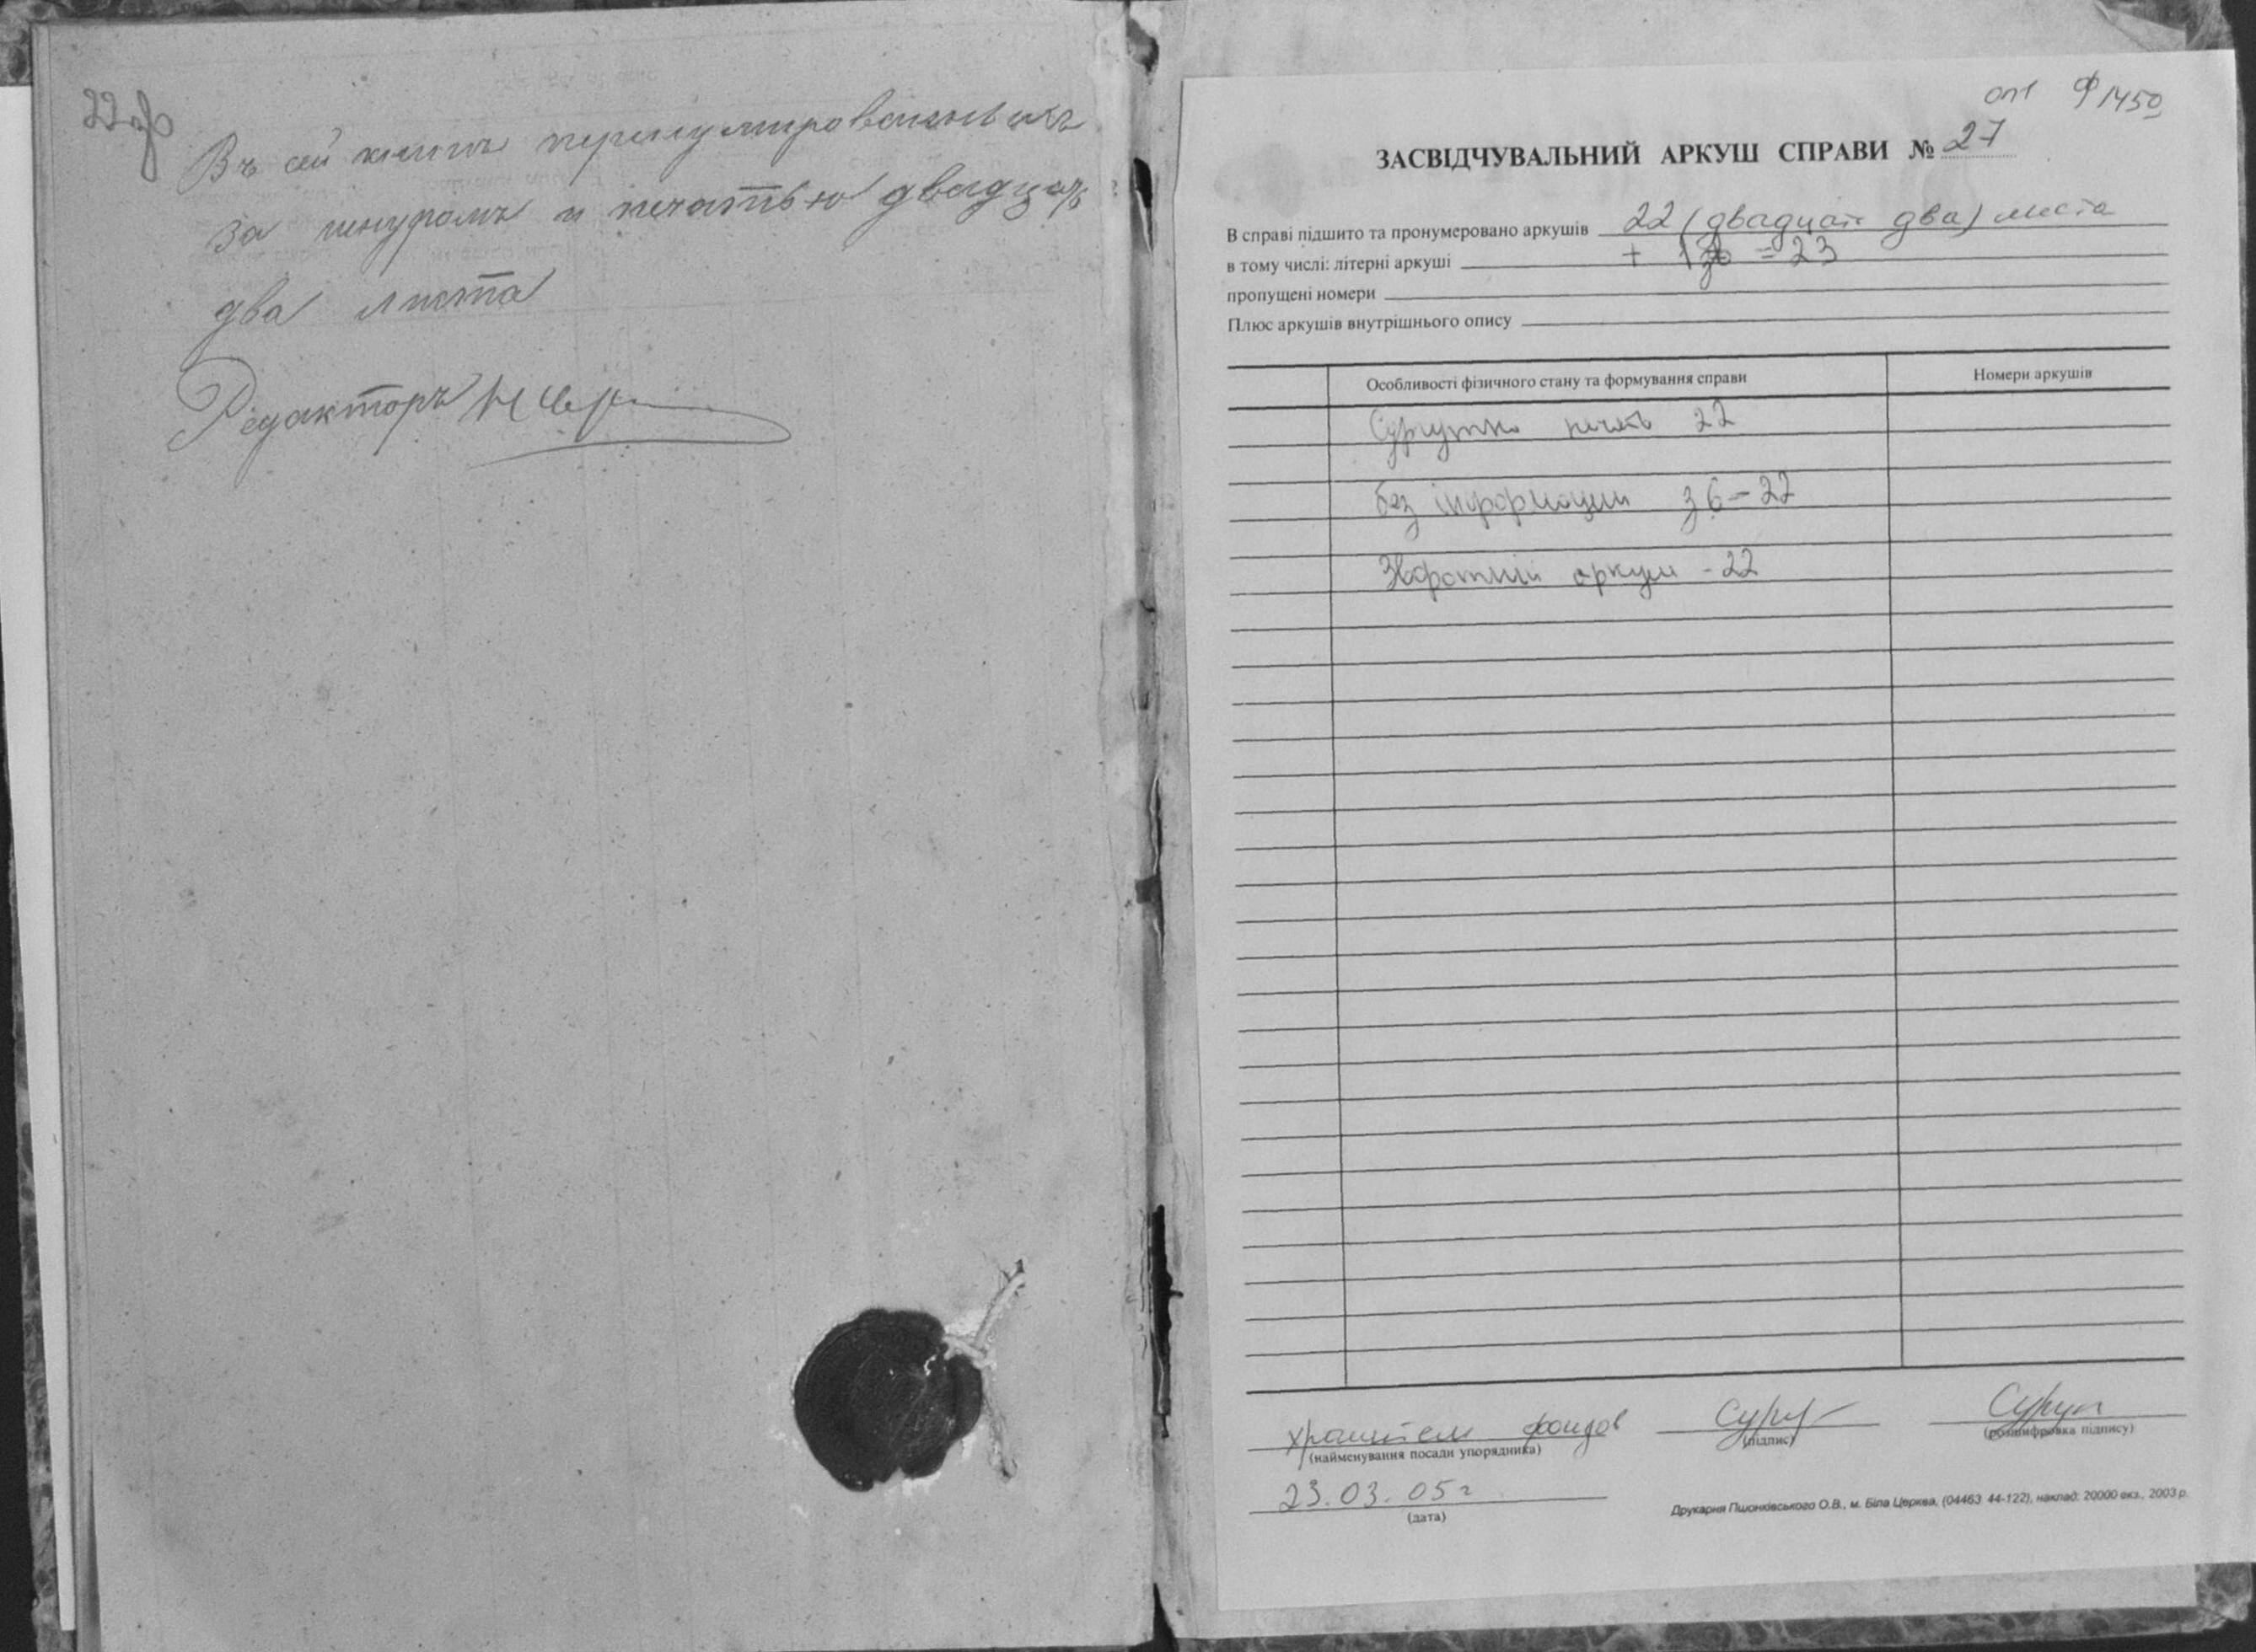 22 об
Въ сей книгѣ перенумерованныхъ
за шнуромъ и печатью двадцать
два листа
Редакторъ
оп1 Ф1450
ЗАСВІДЧУВАЛЬНИЙ АРКУШ СПРАВИ № 27
В справі підшито та пронумеровано аркушів 22 (двадцать два) листа
в тому числі: літерні аркуші + 1 = 23
пропущені номери
Плюс аркушів внутрішнього опису
Особливості фізичного стану та формування справи
Номери аркушів
печать 22
без інформации зб - 22
Зворотний аркуш - 22
хранитель фондов
(найменування посади упорядника)
(підпис)
(розшифровка підпису)
23.03.05г
(дата)
Друкарня Пшонківського О.В., м. Біла Церква, (04463 44-122), наклад: 20000 екз., 2003 р.